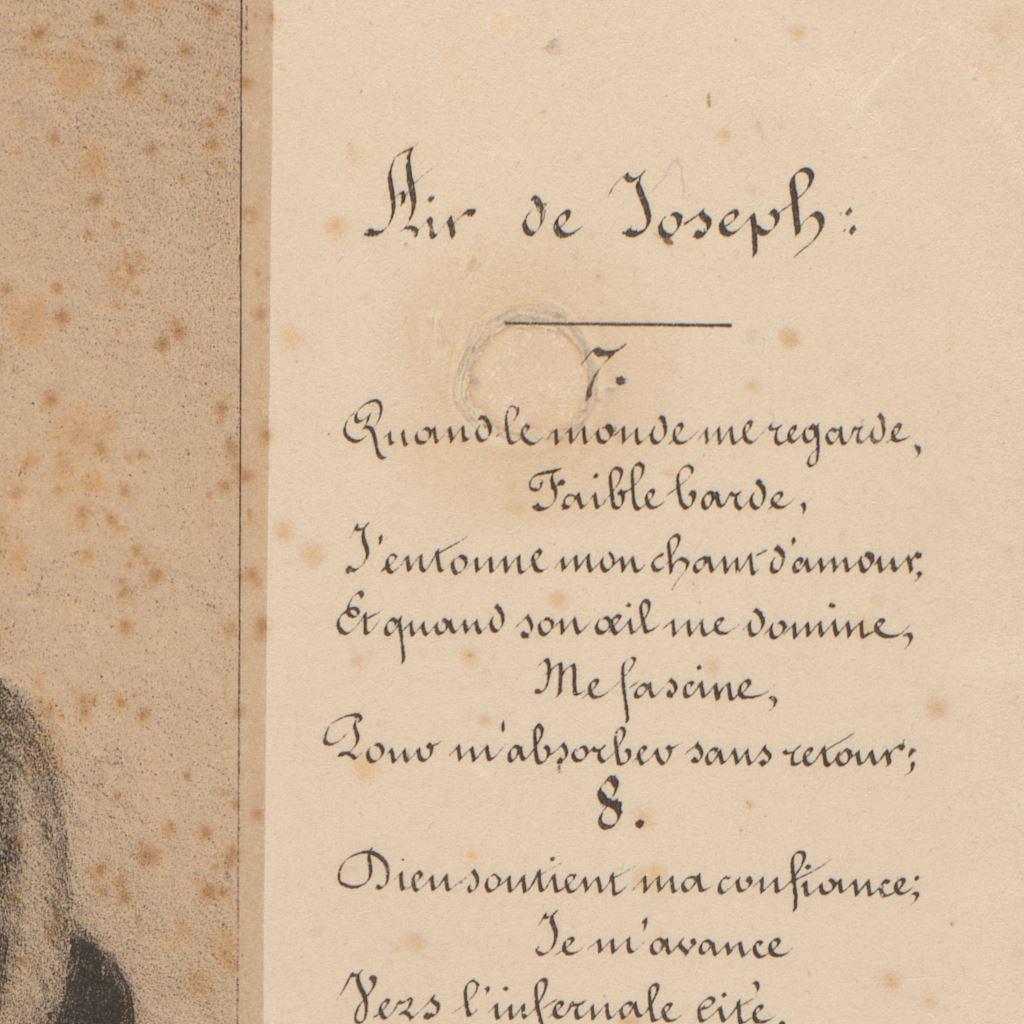 Air de Joseph:
7.
Quand le monde me regarde,
Faible barde,
J'entonne mon chant d'amour,
Et quand son œil me domine,
Me fascine,
Pour m'absorber sans retour;
8.
Dieu soutient ma confiance;
Je m'avance
Vers l'infernale cité,